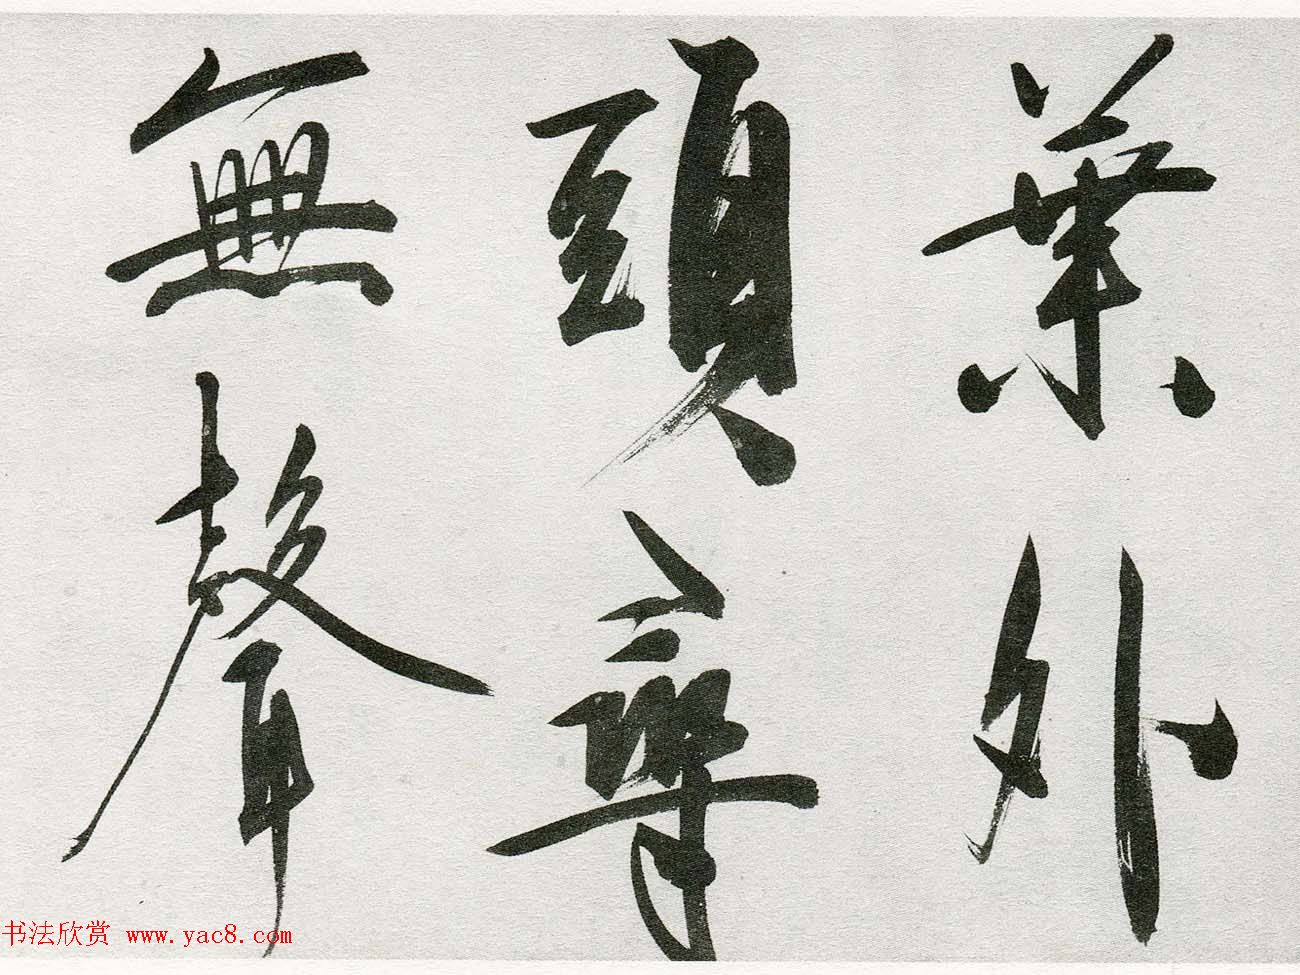 葉外
頭
無聲
书法欣赏 www.yac8.com